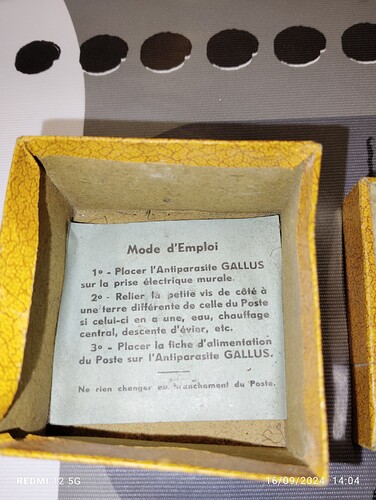 Mode d'Emploi
1º - Placer l'Antiparasite GALLUS
sur la prise électrique murale.
2º - Relier la petite vis de côté à
une terre différente de celle du Poste
si celui-ci en a une, eau, chauffage
central, descente d'évier, etc.
3º - Placer la fiche d'alimentation
du Poste sur l'Antiparasite GALLUS.
Ne rien changer au branchement du Poste.
REDMI 12 5G
16/09/2024 14:04